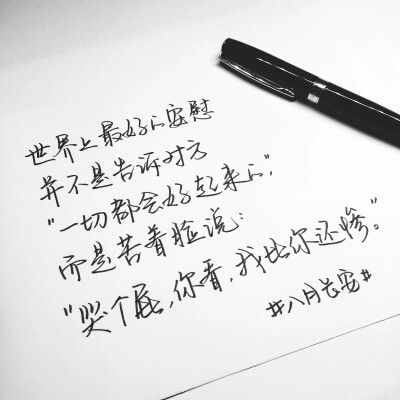 世界上最好的安慰
并不是告诉对方
"一切都会好起来的",
而是苦着脸说:
"哭个屁,你看,我比你还惨。"
#八月长安#